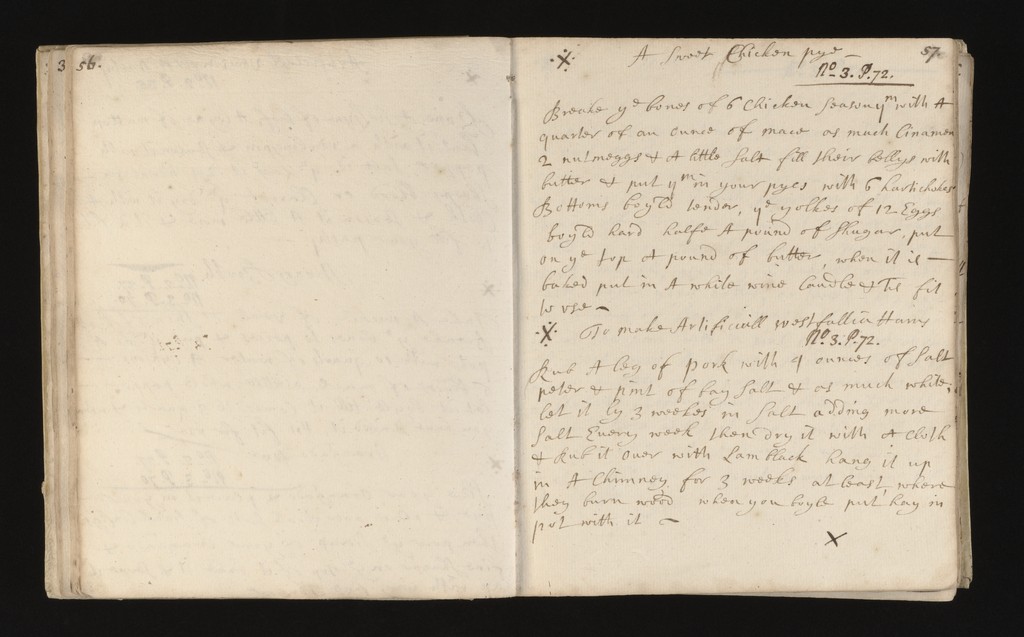 3 56.
A Sweet Chicken pye —
57.
No. 3. P. 72.
Breake ye bones of 6 Chicken Season ym with A
quarter of an ounce of mace as much Cinamen
2 nutmeggs & A little Salt fill their bellys with
butter & put ym in your pyes with 6 hartichokes
Bottoms boyld tender, ye yolkes of 12 Eggs
boyld hard halfe A pound of Shugar, put
on ye top A pound of butter, when it is —
baked put in A white wine Caudle & Tis fit
to use —
To make Artificiall westfallia Hams
No. 3. P. 72.
Rub A leg of pork with 4 ounces of Salt
peter & pint of bay Salt & as much white,
let it ly 3 weekes in Salt adding more
Salt Every week then dry it with A Cloth
& Rub it over with Lamblack hang it up
in A Chimney for 3 weeks at least where
they burn wood when you boyle put hay in
pot with it —
X